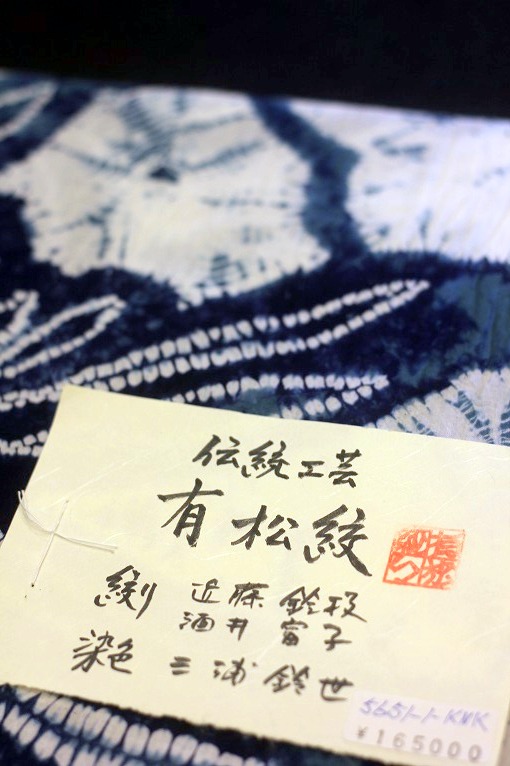 伝統工芸
有松絞
絞り 近藤 鈴枝
酒井 富子
染色 三浦 鈴世
5651-1-KWK
¥165000